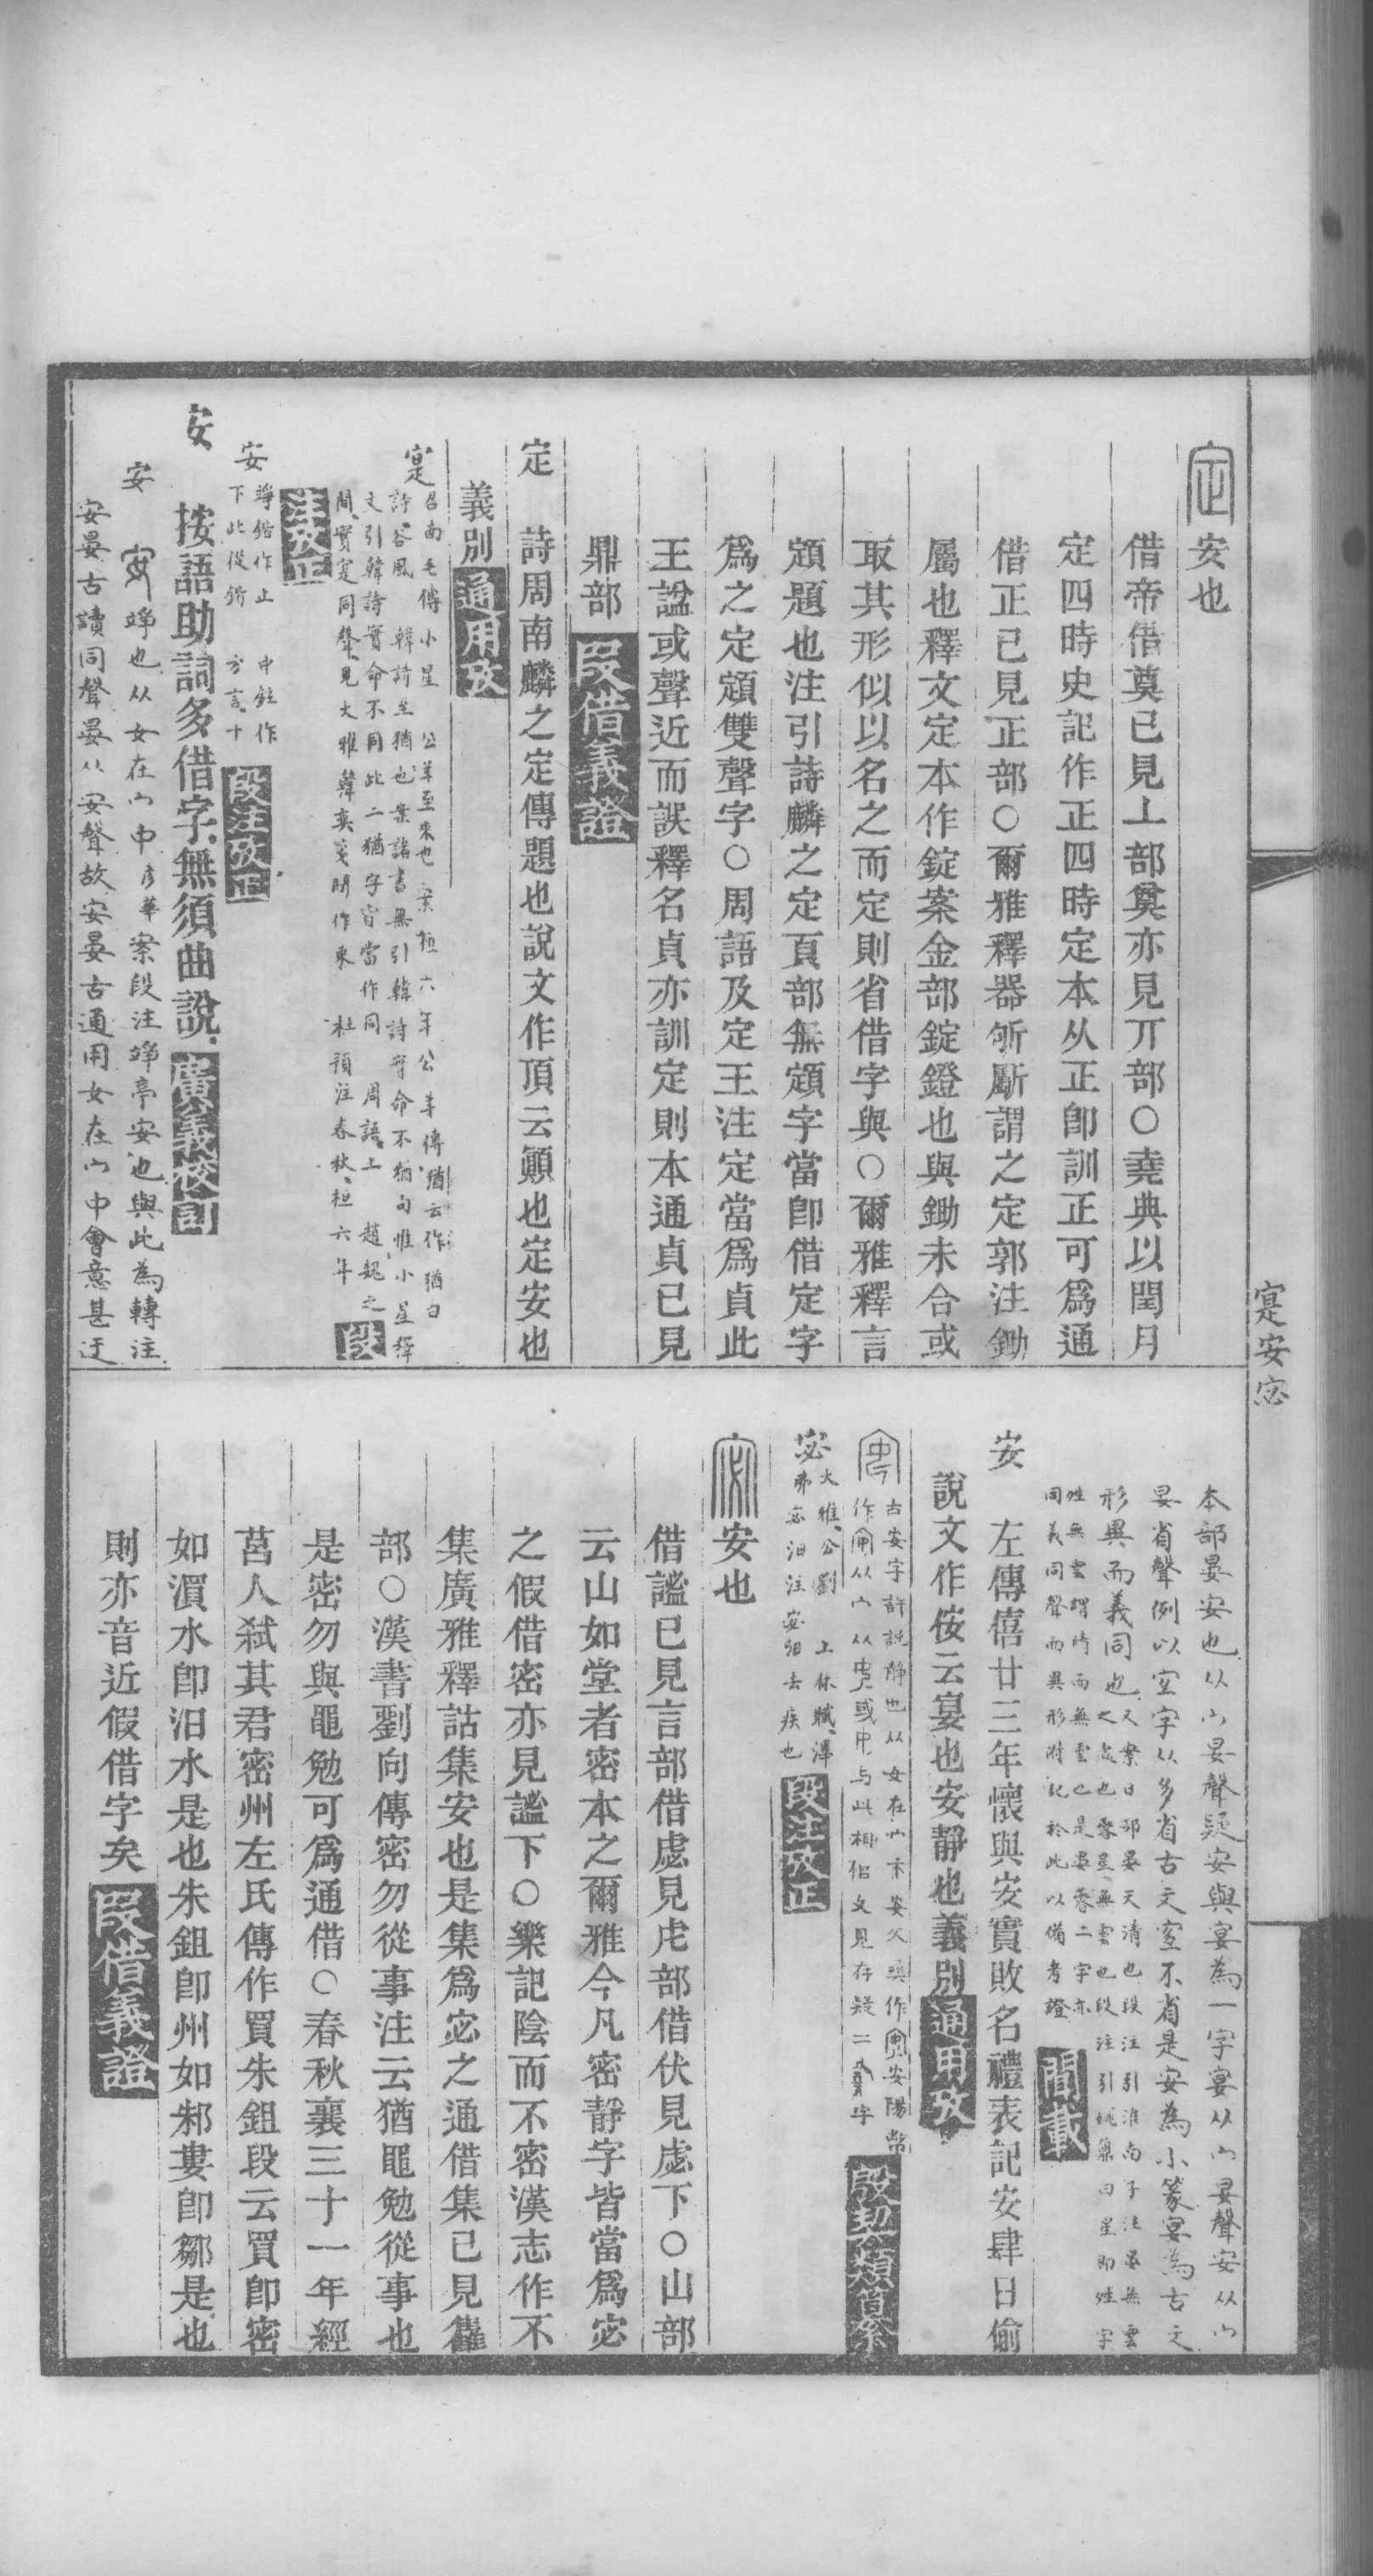 寔安宓
定安也
借帝借奠已見上部奠亦見丌部○堯典以閏月
定四時史記作正四時定本从正卽訓正可爲通
借正已見正部○爾雅釋器斫斸謂之定郭注鋤
屬也釋文定本作錠案金部錠鐙也與鋤未合或
取其形似以名之而定則省借字與○爾雅釋言
頲題也注引詩麟之定頁部無頲字當卽借定字
爲之定頲雙聲字○周語及定王注定當爲貞此
王諡或聲近而誤釋名貞亦訓定則本通貞已見
鼎部 叚借義證
定 詩周南麟之定傳題也說文作頂云顚也定安也
義別 通用攷
寔 召南毛傳小星 公羊至來也 案桓六年公羊傳猶云作猶曰
詩召風 韓詩 猶也 案諸書無引韓詩實命不猶句惟小星釋
文引韓詩實命不同此二猶字皆當作同 周語上 趙魏之
間實寔同聲見大雅韓奕箋 作東 杜預注春秋桓六年 段
注攷正
安 竫鍇作止 申鉉作
下此從鍇 方言十 段注攷正
安 按語助詞多借字無須曲說 廣義校訂
安 竫也从女在宀中 彥華案段注竫亭安也與此為轉注
安晏古讀同聲晏从安聲故安晏古通用女在宀中會意甚迂
本部宴安也从宀妟聲疑安與宴為一字宴从宀妟聲安从宀
妟省聲例以宜字从多省古文宜不省是安為小篆宴為古文
形異而義同也 又案日部晏天清也段注引淮南子注晏無雲
之處也 星無雲也段注引姚氏曰星卽姓字
姓無雲謂時而無雲也是晏 二字亦
同義同聲而異形附記於此以備考證 閒載
安 左傳僖廿三年懷與安實敗名禮表記安肆日偷
說文作侒云宴也安靜也義別 通用攷
古安字許說靜也从女在宀下安父 作 安陽幣
作 从宀从 或 与此相侣文見存疑二 字 殷契類纂
宓 大雅公劉 上林賦滭
弗宓汨注宓汨去疾也 段注攷正
宓安也
借謐已見言部借虙見虍部借伏見虙下○山部
云山如堂者密本之爾雅今凡密靜字皆當爲宓
之假借密亦見謐下○樂記陰而不密漢志作不
集廣雅釋詁集安也是集爲宓之通借集已見雥
部○漢書劉向傳密勿從事注云猶黽勉從事也
是密勿與黽勉可爲通借○春秋襄三十一年經
莒人弒其君密州左氏傳作買朱鉏段云買卽密
如湏水卽汨水是也朱鉏卽州如邾婁卽鄒是也
則亦音近假借字矣 叚借義證